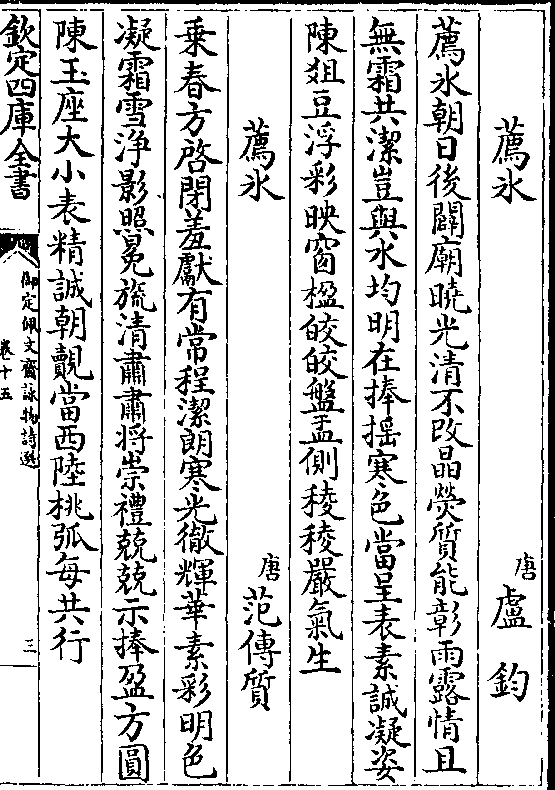 薦氷
唐
盧鈞
薦氷朝日後闢廟曉光清不改晶熒質能彰雨露情且
無霜共潔豈與水均明在捧揺寒色當呈表素誠凝姿
陳俎豆浮彩映窗楹皎皎盤盂側稜稜嚴氣生
薦氷
唐
范傳質
乗春方啓閉羞獻有常程潔朗寒光徹輝華素彩明色
凝霜雪浄影照冕旒清肅肅將崇禮兢兢示捧盈方圓
陳玉座大小表精誠朝覿當西陸桃弧每共行
欽定四庫全書
御定佩文齋詠物詩選
卷十五
三